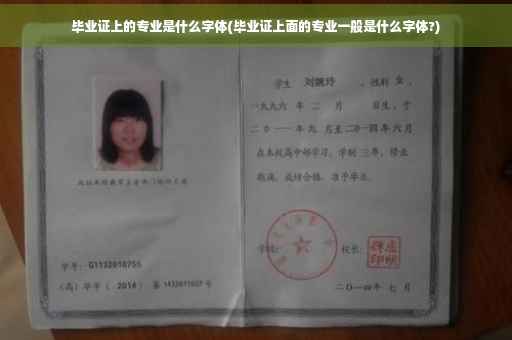 毕业证上的专业是什么字体(毕业证上面的专业一般是什么字体?)
学生 刘婉玲 ，性别 女 ，
一九九六 年 二 月 日生，于
二〇一一 年 九 月至 二〇一四 年 六 月
在本校高中部学习，学制 三 年，修业
期满，成绩合格，准予毕业。
学号： G1132010755
（高）毕字（ 2014 ）第 1432011027 号
学校：
校长：
二〇一四年 七 月